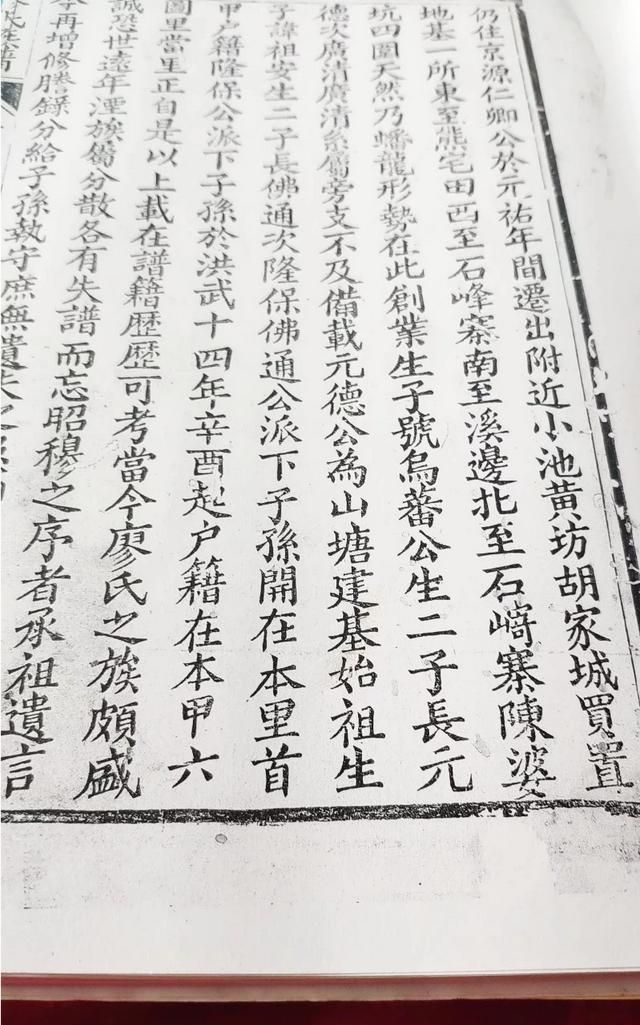 仍住京源仁卿公於元祐年間遷出附近小池黃坊胡家城買置
地基一所東至熊宅田西至石峰寨南至溪邊北至石﨑寨陳婆
坑四圍天然乃蟠龍形勢在此創業生子號烏蕃公生二子長元
德次廣清廣清系屬旁支不及備載元德公為山塘建基始祖生
子諱祖安生二子長佛通次隆保佛通公派下子孫開在本里首
甲户籍隆保公派下子孫於洪武十四年辛酉起户籍在本甲六
圖里當里正自是以上載在譜籍歷歷可考當今廖氏之族頗盛
誠恐世遠年湮族屬分散各有失譜而忘昭穆之序者承祖遺言
今再增修謄錄分給子孫執守庶無遺失之
氏族譜